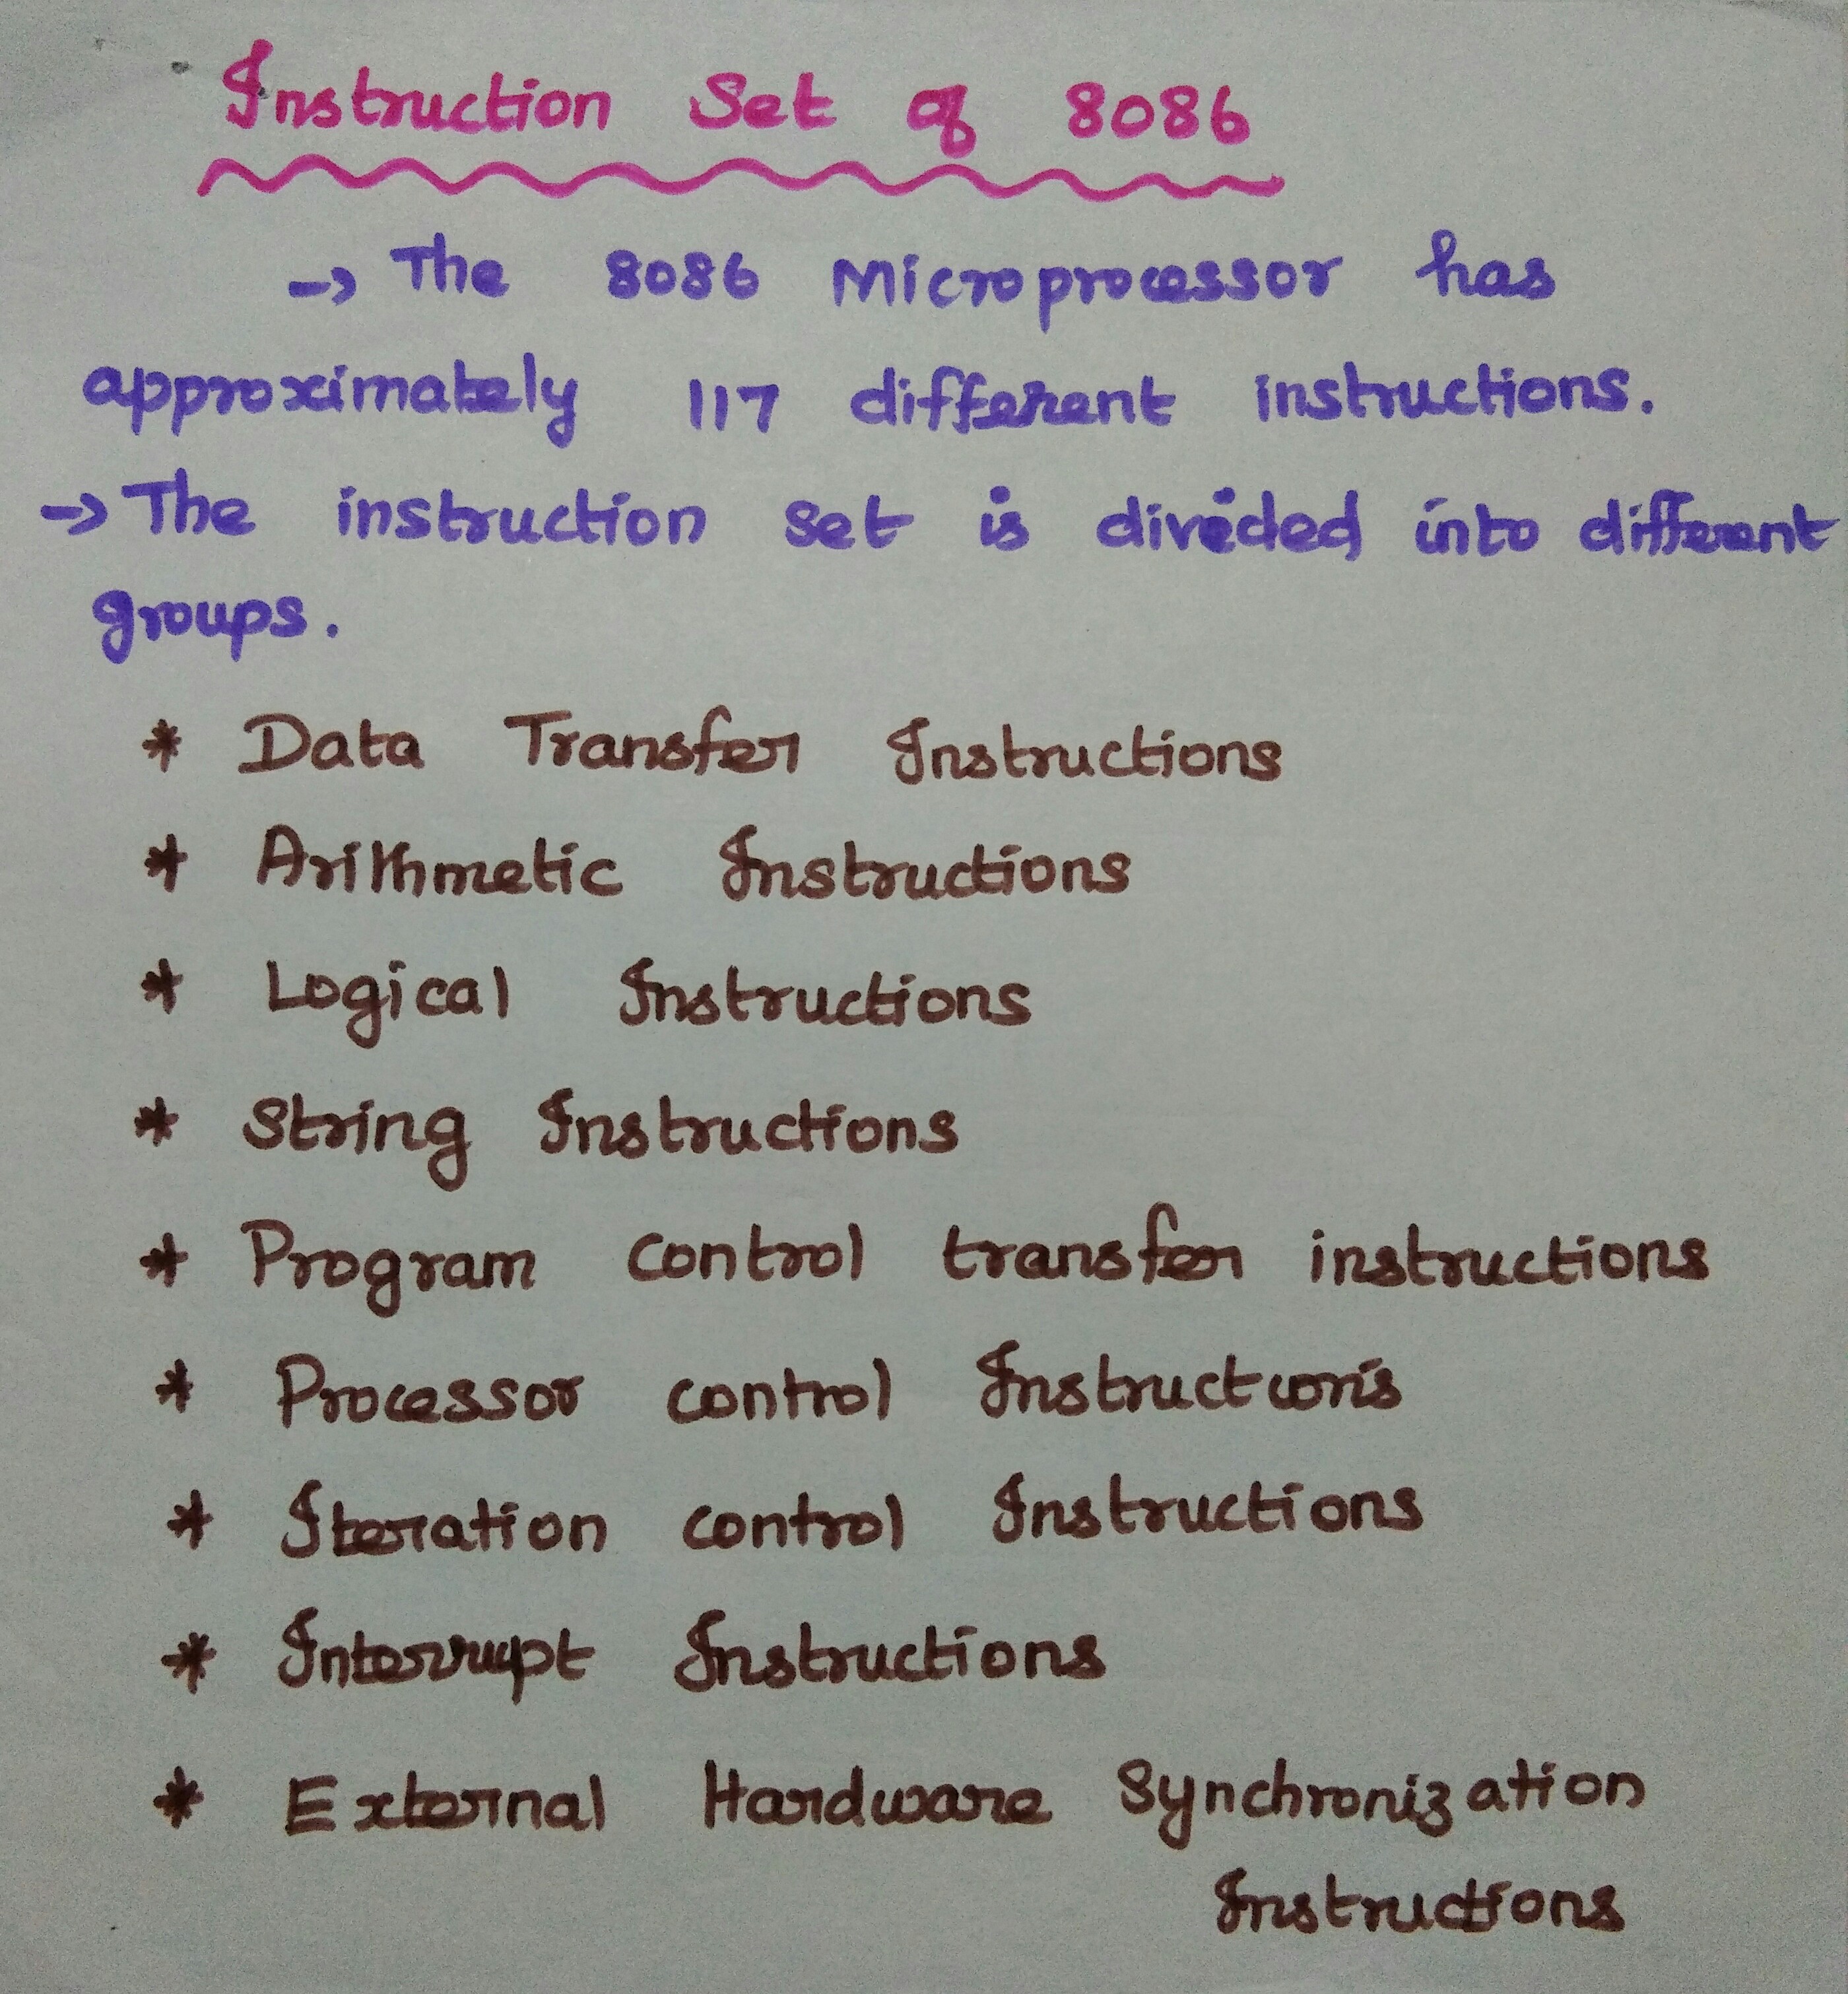 Instruction Set of 8086
→ The 8086 Microprocessor has
approximately 117 different instructions.
→ The instruction set is divided into different
groups.
* Data Transfer Instructions
* Arithmetic Instructions
* Logical Instructions
* String Instructions
* Program control transfer instructions
* Processor control Instructions
* Iteration control Instructions
* Interrupt Instructions
* External Hardware Synchronization
Instructions